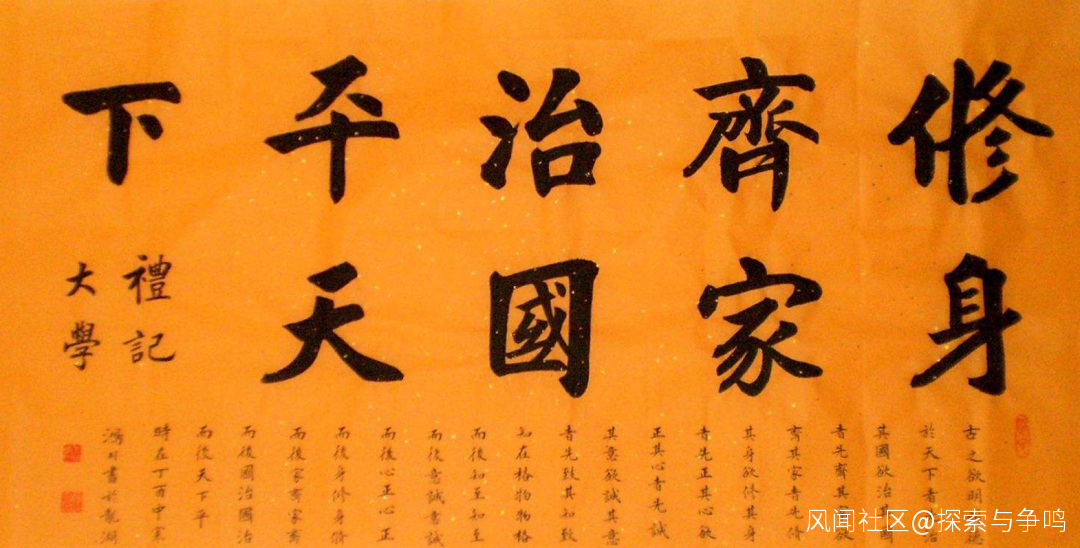 修身
齊家
治國
平天
下
禮記
大學
古之欲明明德
於天下者先治
其國欲治其國
者先齊其家欲
齊其家者先修
其身欲修其身
者先正其心欲
正其心者先誠
其意欲誠其意
者先致其知致
知在格物物格
而後知至知至
而後意誠意誠
而後心正心正
而後身修身修
而後家齊家齊
而後國治國治
而後天下平
時在丁酉中
書於龍湖
风闻社区@探索与争鸣